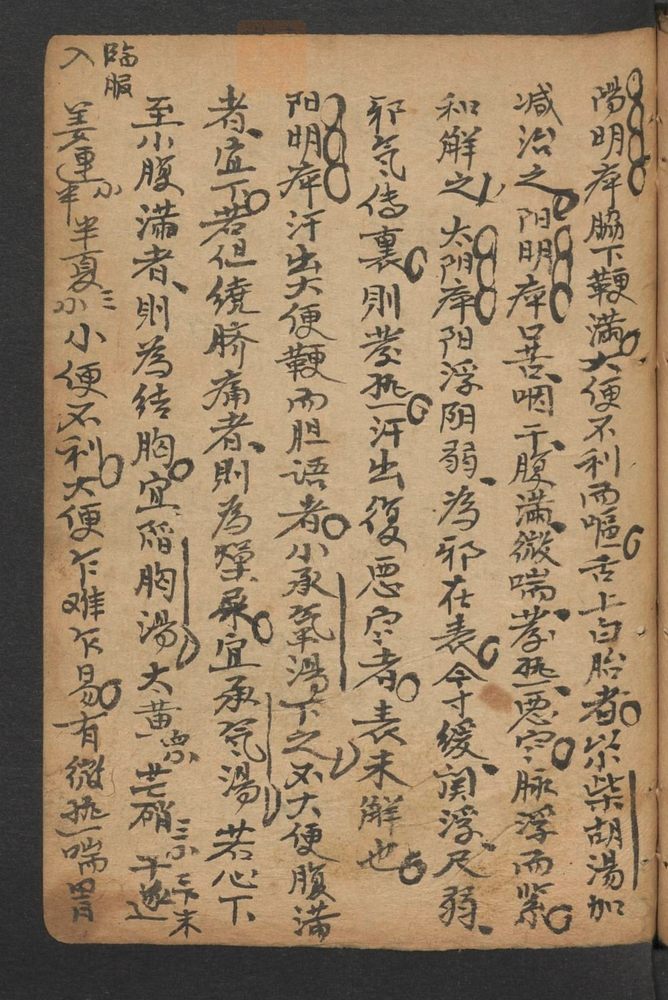 陽明病脇下鞕滿大便不利而嘔舌上白胎者小柴胡湯加
减治之阳明病口苦咽干腹滿微喘發热惡寒脉浮而緊
和解之太阴病阳浮阴弱為邪在表今寸缓関浮尺弱
邪氣傳裏則發热汗出復惡寒者表未解也
阳明病汗出大便鞕而胆語者小承氣湯下之又大便腹满
者宜下若但繞脐痛者則為燥屎宜承氣湯 若心下
至小腹滿者則為结胸宜陷胸湯 大黄 芒硝 三小 下末
臨服入
姜連 半夏 三小 小便不利大便乍难乍易有微热喘